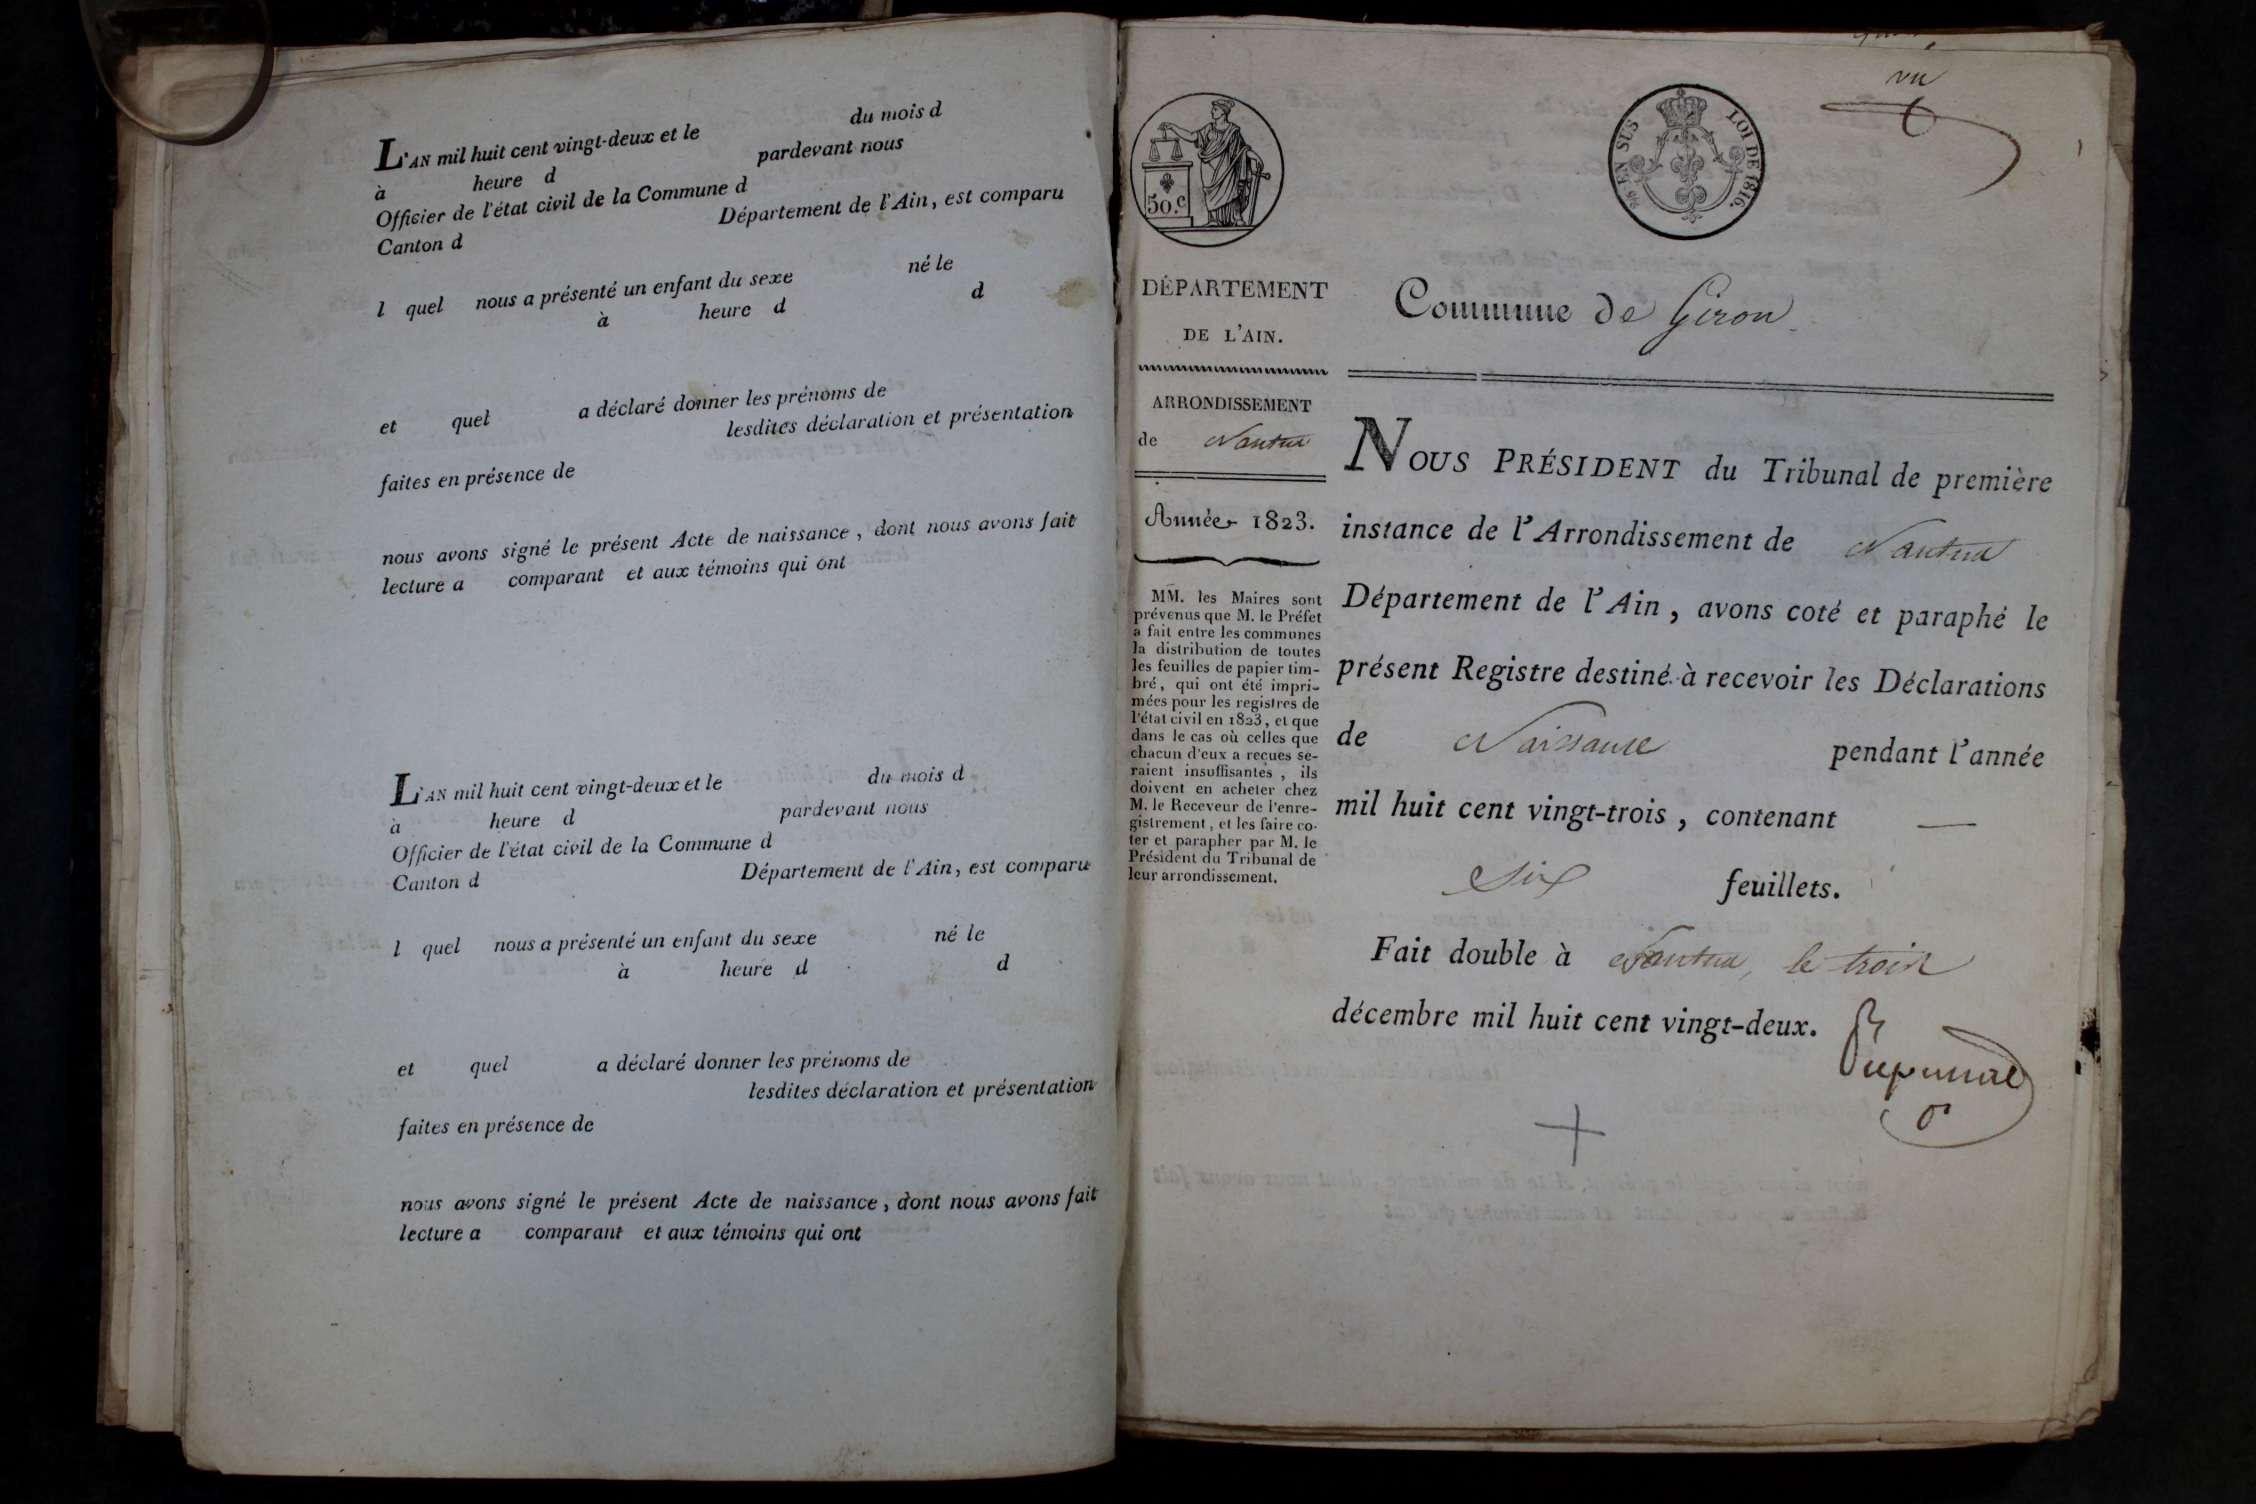 L'AN mil huit cent vingt-deux et le du mois d
à heure d pardevant nous
Officier de l'état civil de la Commune d
Canton d Département de l'Ain, est comparu
l quel nous a présenté un enfant du sexe né le
à heure d d
et quel a déclaré donner les prénoms de
lesdites déclaration et présentation
faites en présence de
nous avons signé le présent Acte de naissance, dont nous avons fait
lecture a comparant et aux témoins qui ont
L'AN mil huit cent vingt-deux et le du mois d
à heure d pardevant nous
Officier de l'état civil de la Commune d
Canton d Département de l'Ain, est comparu
l quel nous a présenté un enfant du sexe né le
à heure d d
et quel a déclaré donner les prénoms de
lesdites déclaration et présentation
faites en présence de
nous avons signé le présent Acte de naissance, dont nous avons fait
lecture a comparant et aux témoins qui ont
50.c
EN SUS LOI DE 1816.
DÉPARTEMENT
DE L'AIN.
ARRONDISSEMENT
de Nantua
Année 1823.
MM. les Maires sont
prévenus que M. le Préfet
a fait entre les communes
la distribution de toutes
les feuilles de papier tim-
bré, qui ont été impri-
mées pour les registres de
l'état civil en 1823, et que
dans le cas où celles que
chacun d'eux a reçues se-
raient insuffisantes, ils
doivent en acheter chez
M. le Receveur de l'enre-
gistrement, et les faire co-
ter et parapher par M. le
Président du Tribunal de
leur arrondissement.
Commune de Giron
NOUS PRÉSIDENT du Tribunal de première
instance de l'Arrondissement de Nantua
Département de l'Ain, avons coté et paraphé le
présent Registre destiné à recevoir les Déclarations
de Naissance pendant l'année
mil huit cent vingt-trois, contenant —
Six feuillets.
Fait double à Nantua, le trois
décembre mil huit cent vingt-deux.